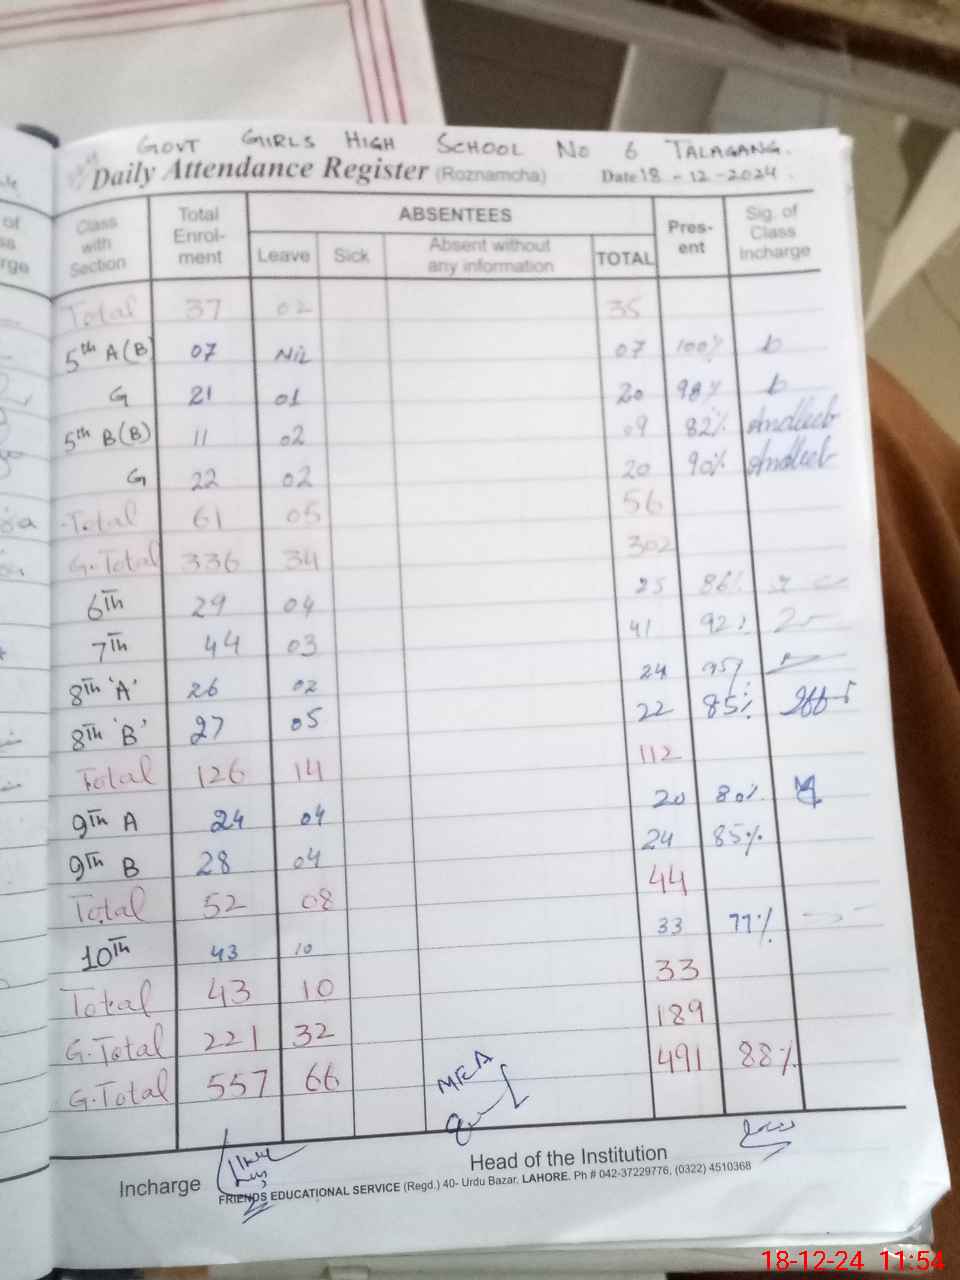 GOVT GIRLS HIGH SCHOOL NO 6 TALAGANG.
Daily Attendance Register (Roznamcha) Date 18 - 12 - 2024.
Class with Section Total Enrol-ment ABSENTEES Pres-ent Sig. of Class Incharge
Leave Sick Absent without any information TOTAL
Total 37 02 35
5th A(B) 07 Nil 07 100% b
G 21 01 20 98% b
5th B(B) 11 02 09 82% Andleeb
G 22 02 20 90% Andleeb
Total 61 05 56
G.Total 336 34 302
6Th 29 04 25 86%
7Th 44 03 41 92%
8Th 'A' 26 02 24 95%
8Th 'B' 27 05 22 85%
Total 126 14 112
9Th A 24 04 20 80%
9Th B 28 04 24 85%
Total 52 08 44
10Th 43 10 33 77%
Total 43 10 33
G.Total 221 32 189
G.Total 557 66 491 88%
MEA
Incharge Head of the Institution
FRIENDS EDUCATIONAL SERVICE (Regd.) 40- Urdu Bazar, LAHORE. Ph # 042-37229776, (0322) 4510368
18-12-24 11:54